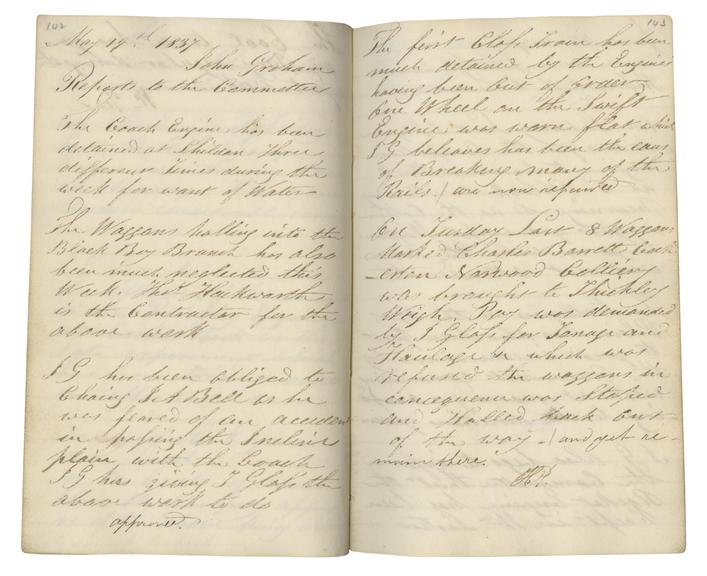 142
May 19th 1837
John Graham
Reports to the Committee
The Coach Engine has been
detained at Shildon Three
different Times during the
week for want of Water
The Waggons halling into the
Black Boy Branch has also
been much neglected this
Week Thos Hackworth
is the Contractor for the
above work
J G has been obliged to
Chaing J A Bell as he
was feared of an accident
in passing the Incline
plain with the Coach
J G has giving J Glass the
above work to do
approved.
143
The first Class Train has been
much detained by the Engines
having been out of order
One Wheel on the Swift
Engine was worn flat which
J G beleaves has been the caus
of Breaking many of the
Rails / are now repaired
On Tuesday Last 8 Waggons
Marked Charles Barretts
Norwood Colliery
was brought to Thickley
Weigh. Pay was demanded
by J Glass for Tonage and
Haulage which was
refused the waggons in
concequence was Stoped
and Halled back out
of the way / and yet re-
main there.